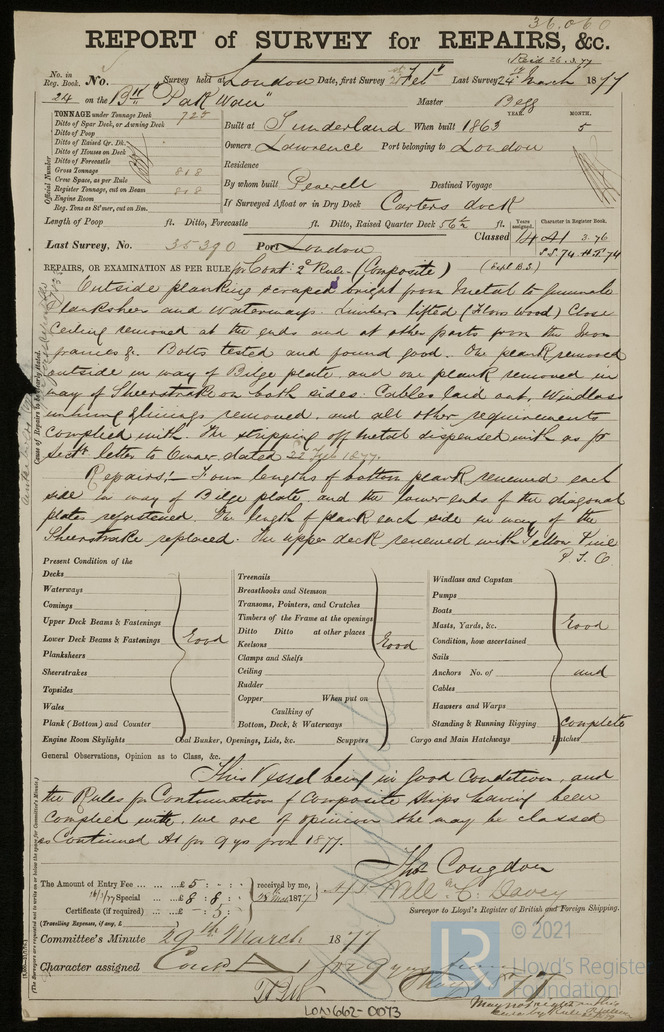 36.060
REPORT of SURVEY for REPAIRS, &c.
Recd 26.3.77
No. in Reg. Book. No. Survey held at London Date, first Survey Feby Last Survey 24th March 1877
24 on the Bk "Park Wood" Master Begg
TONNAGE under Tonnage Deck 725
Ditto of Spar Deck, or Awning Deck
Ditto of Poop
Ditto of Raised Qr. Dk.
Ditto of Houses on Deck
Ditto of Forecastle
Gross Tonnage 818
Crew Space, as per Rule
Register Tonnage, cut on Beam 818
Engine Room
Reg. Tons as St'mer, cut on Bm.
Official Number
YEAR. MONTH.
Built at Sunderland When built 1863 5
Owners Lawrence Port belonging to London
Residence
By whom built Peverell Destined Voyage
If Surveyed Afloat or in Dry Dock Carters dock
Length of Poop ft. Ditto, Forecastle ft. Ditto, Raised Quarter Deck 56½ ft.
Years assigned. Character in Register Book.
Last Survey, No. 35390 Port London Classed 14 A1 3.76
S.S. 74. H.T. 74
REPAIRS, OR EXAMINATION AS PER RULE, for Cont: 2d Rule - (Composite) (Expl B.S.)
Outside planking scraped bright from Metal to gunwale
Planksheer and Waterways. Limbers lifted (Floors Wood) Close
Ceiling removed at the ends and at other parts from the Iron
frames &c. Bolts tested and found good. One plank removed
outside in way of Bilge plate, and one plank removed in
way of Sheerstrake on both sides. Cables laid out, Windlass
unhung & linings removed, and all other requirements
complied with. The stripping off metal dispensed with as pr
Secty letter to Owner dated 22 Feby 1877.
Cause of Repairs to be clearly stated.
Repairs:- Four lengths of bottom plank renewed each
side in way of Bilge plate, and the lower ends of the diagonal
plates refastened. One length of plank each side in way of the
Sheerstrake replaced. The upper deck renewed with Yellow Pine
P.T.O.
Present Condition of the
Decks
Waterways
Comings
Upper Deck Beams & Fastenings
Lower Deck Beams & Fastenings Good
Planksheers
Sheerstrakes
Topsides
Wales
Plank (Bottom) and Counter
Engine Room Skylights
Treenails
Breasthooks and Stemson
Transoms, Pointers, and Crutches
Timbers of the Frame at the openings
Ditto Ditto at other places
Keelsons Good
Clamps and Shelfs
Ceiling
Rudder
Copper When put on
Caulking of
Bottom, Deck, & Waterways
Coal Bunker, Openings, Lids, &c. Scuppers
Windlass and Capstan
Pumps
Boats
Masts, Yards, &c. Good
Condition, how ascertained
Sails
Anchors No. of and
Cables
Hawsers and Warps
Standing & Running Rigging complete
Cargo and Main Hatchways Hatches
General Observations, Opinion as to Class, &c.
This Vessel being in Good Condition, and
the Rules for Continuation of Composite Ships having been
Complied with, we are of opinion she may be classed
as Continued A1 for 9 yrs from 1877.
Thos Congdon
Will C. Davey
Surveyor to Lloyd's Register of British and Foreign Shipping.
The Amount of Entry Fee £ 5 : - : - received by me,
Special £ 8 : 8 : -
Certificate (if required) £ - : 5 : -
(Travelling Expenses, if any, £
Committee's Minute 29th March 1877
Character assigned Contd A 1 for 9 yrs from
1877
(The Surveyors are requested not to write on or below the space for Committee's Minute.)
© 2021
Lloyd's Register
Foundation
LON662-0073